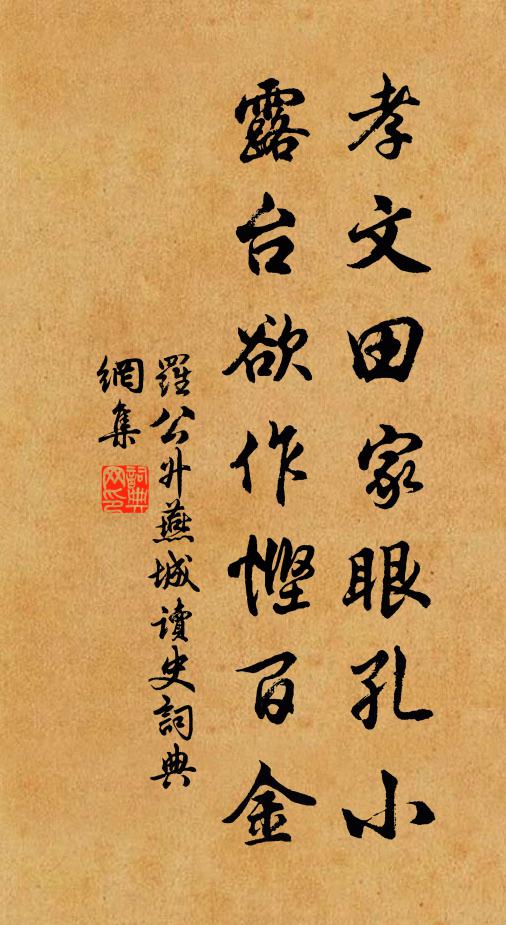 孝文田家眼孔小
露台欲作慳百金
羅公升燕城讀史詞典
網集
詞典
网印